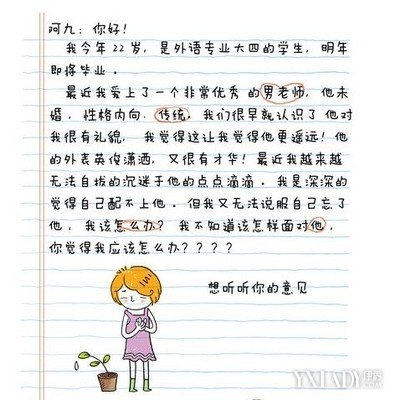 阿九：你好！
我今年22岁，是外语专业大四的学生，明年
即将毕业。
最近我爱上了一个非常优秀的男老师，他未
婚，性格内向，传统。我们很早就认识了他对
我很有礼貌，我觉得这让我觉得他更遥远！他
的外表英俊潇洒，又很有才华！最近我越来越
无法自拔的沉迷于他的点点滴滴。我是深深的
觉得自己配不上他。但我又无法说服自己忘了
他，我该怎么办？我不知道该怎样面对他，
你觉得我应该怎么办？？？？
想听听你的意见